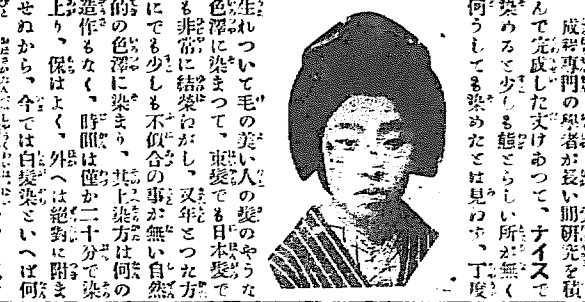 成程専門の學者が長い間研究を積
んで完成した丈けあつて、ナイスで
染めると少しも態とらしい所が無く
何うしても染めたとは見えず、丁度
生れついて毛の美い人の髮のやうな
色澤に染まつて、束髮でも日本髮で
も非常に結榮えがし、又年とつた方
にでも少しも不似合の事が無い自然
的の色澤に染まり、其上染方は何の
造作もなく、時間は僅か二十分で染
上り、保はよく、外へは絶對に附ま
せぬから、今では白髮染といへば何